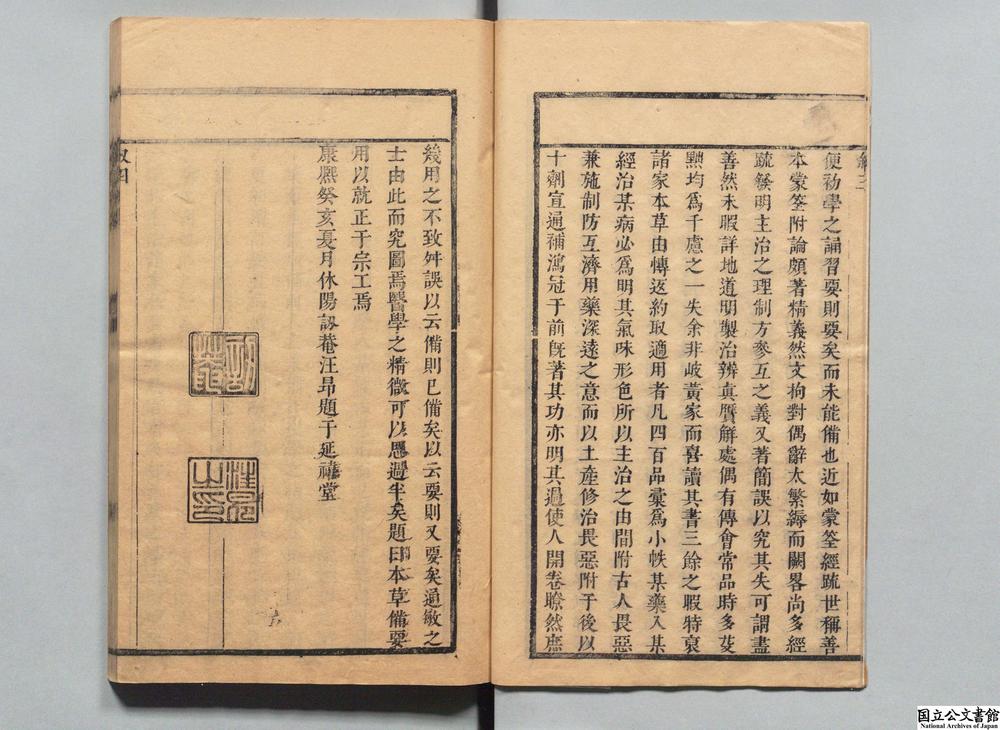 叙三
便初學之誦習要則要矣而未能備也近如蒙筌經疏世稱善
本蒙筌附論頗著精義然文拘對偶辭太繁縟而闕畧尚多經
疏發明主治之理制方參互之義又著簡誤以究其失可謂盡
善然未暇詳地道明製治辨真贋解處偶有傳會常品時多芟
黜均爲千慮之一失余非岐黃家而喜讀其書三餘之暇特裒
諸家本草由愽返約取適用者凡四百品彙爲小帙某藥入某
經治某病必爲明其氣味形色所以主治之由間附古人畏惡
兼施制防互濟用藥深遠之意而以土產修治畏惡附于後以
十劑宣通補瀉冠于前旣著其功亦明其過使人開卷瞭然庶
幾用之不致舛誤以云備則已備矣以云要則又要矣通敏之
士由此而究圖焉醫學之精微可以思過半矣題曰本草備要
用以就正于宗工焉
康熈癸亥夏月休陽訒菴汪昂題于延禧堂
訒菴
汪昂之印
叙四
国立公文書館
National Archives of Japan